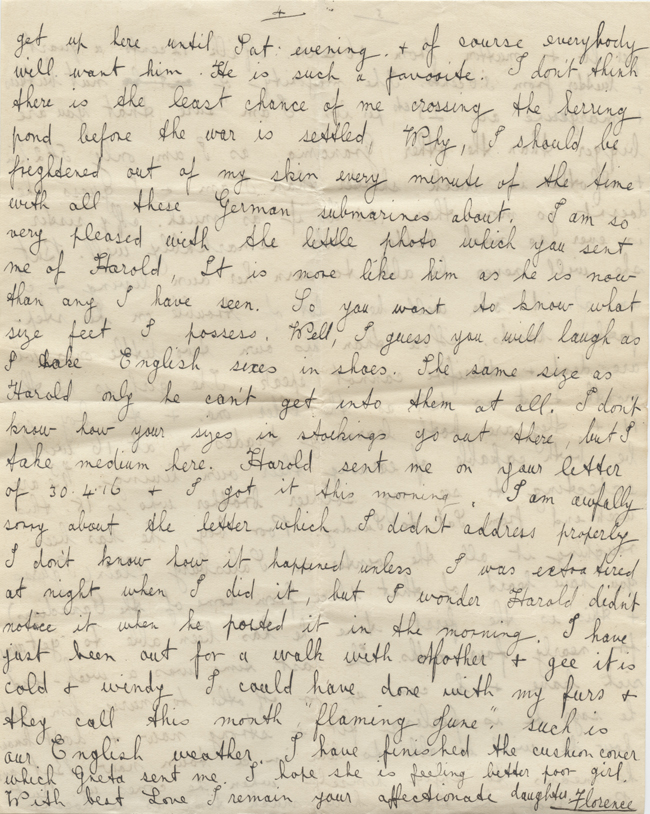 4
get up here until Sat. evening. & of course everybody
will want him. He is such a favourite. I don't think
there is the least chance of me crossing the herring
pond before the war is settled, Why, I should be
frightened out of my skin every minute of the time
with all these German submarines about. I am so
very pleased with the little photo which you sent
me of Harold, It is more like him as he is now
than any I have seen. So you want to know what
size feet I possess. Well, I guess you will laugh as
I take English sixes in shoes. The same size as
Harold only he can't get into them at all. I don't
know how your sizes in stockings go out there, but I
take medium here. Harold sent me on your letter
of 30.4.16 & I got it this morning. I am awfully
sorry about the letter which I didn't address properly
I don't know how it happened unless I was extra tired
at night when I did it, but I wonder Harold didn't
notice it when he posted it in the morning. I have
just been out for a walk with Mother & gee it is
cold & windy I could have done with my furs &
they call this month "flaming June" such is
our English weather. I have finished the cushion cover
which Greta sent me. I hope she is feeling better poor girl.
With best Love I remain your affectionate daughter Florence